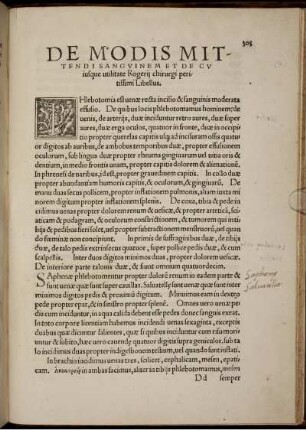 303
DE MODIS MIT-
TENDI SANGVINEM ET DE CV
iusque utilitate Rogerij chirurgi peri-
tissimi Libellus.
Phlebotomia est uenæ recta incisio & sanguinis moderata
effusio. De quibus locis phlebotomamus hominem; de
uenis, de arterijs, duæ inciduntur retro aures, duæ super
aures, duæ erga oculos, quatuor in fronte, duæ in occipi-
tio propter
or digitos ab auribus, de ambobus temporibus duæ, propter effusionem
oculorum, sub lingua duæ propter rheuma gingiuarum uel uua oris &
dentium, in medio frontis unam, propter capitis dolorem & alienationem.
In phrenesi de naribus, id est, propter grauedinem capitis. In collo duæ
propter abundantiam humoris capitis, & oculorum, & gingiuarum. De
manu duas secus pollicem, propter inflationem pulmonis, aliam iuxta mi
norem digitum propter inflationem splenis. De coxa, tibia & pede in
cisio est propter dolorem renum & uesicæ, & propter artetica, sciaticam
& podagram, & oculorum constrictionem, & tumorem quæ in tibijs
huc & pedibus fieri solet, uel propter subtractionem menstruorum, uel quum
foeminæ non concipiunt. In primis de suffraginibus duæ, de tibijs
duæ, de talo pedis extrinsecus quatuor, super pollice pedis duæ, & cum
scalpellis. Inter duos digitos minimos duæ, propter dolorem oculorum.
De interiore parte taloni duæ, & omnes sunt quatuordecim.
Saphenæ phlebotomantur propter dolorē renum in eadem parte &
sunt uenæ quæ sunt super cauillam. Saluatellæ sunt uenæ quæ sunt inter
minimos digitos pedis & proximū digitum. Minuimus eam in dextro
pede propter epar, & in sinistro propter splenē. Omnes uero uenæ pe-
dis cum inciduntur, in calida aqua debent esse pedes donec sanguis exeat.
In toto corpore licentiam habemus incidendi uenas sexaginta, exceptis
duabus quæ dicuntur filantes, quæ si quibus inciduntur cum effamoriun
tur & inobito, hæc uero cauendæ quatuor digitis supra geniculos, sub ta
lo incidimus duas propter indigestionem ciliæ, uel quando sunt inflati.
In brachio incidimus tres uenas, scilicet, cephaleam, mesen, epati-
cam. in ambas faciamus, aliter in tibijs phlebotomamus, mesen,
Dd semper
Saphena
Saluatella